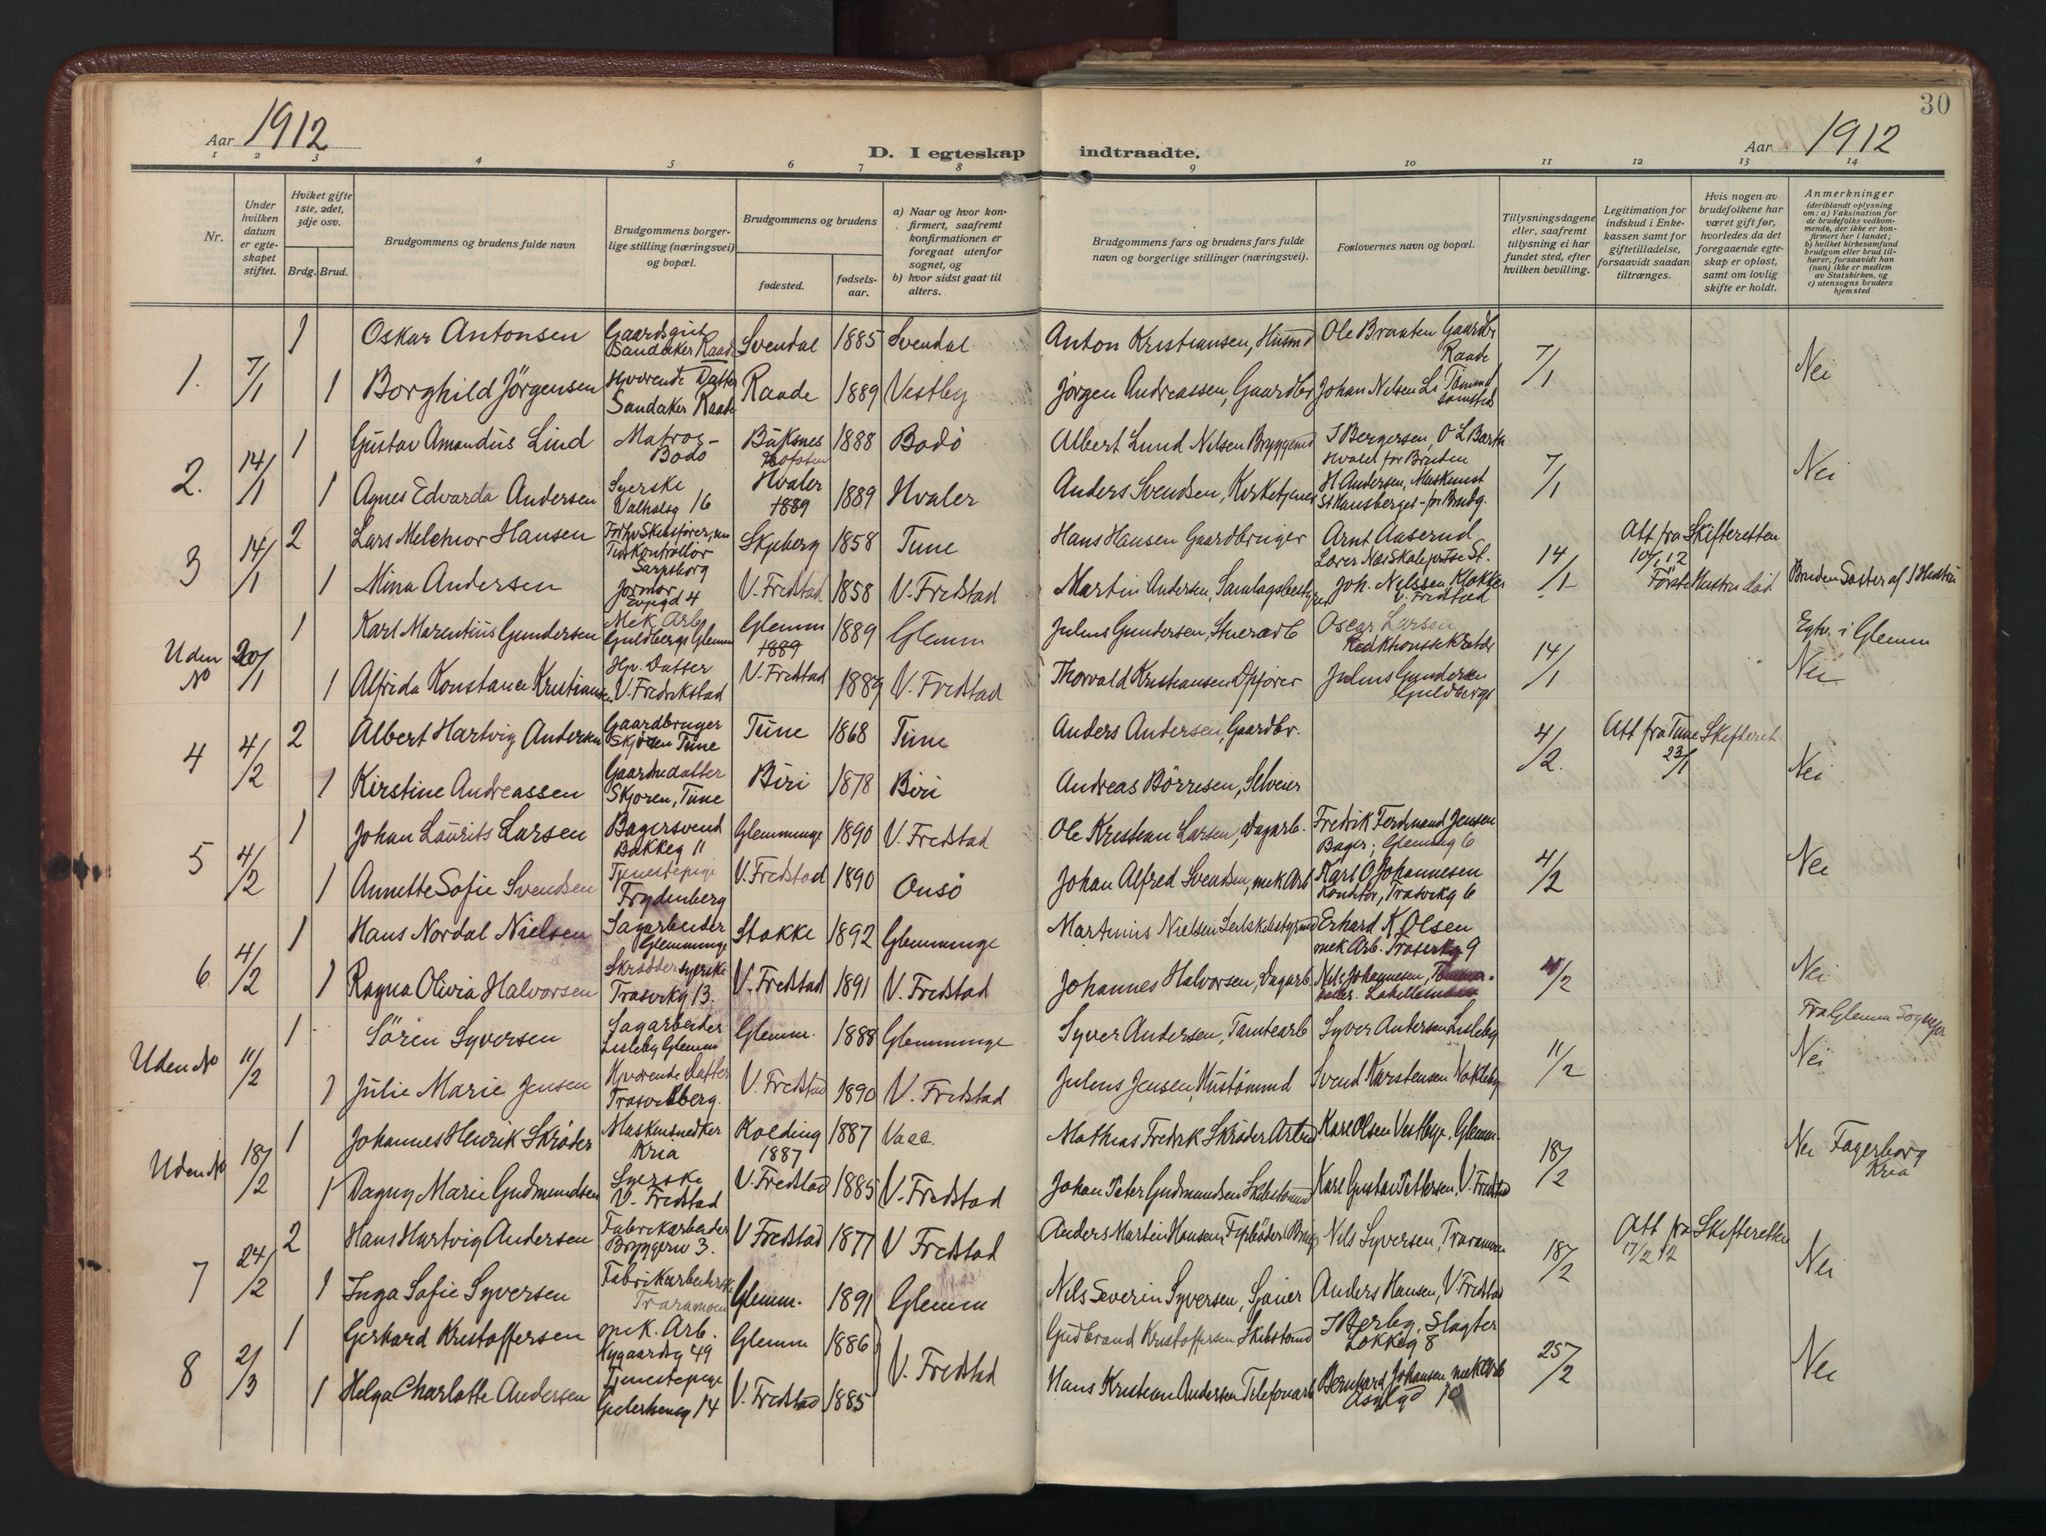 30
Aar 1912
D. I egteskap indtraadte.
Aar 1912
1 2 3 4 5 6 7 8 9 10 11 12 13 14
Nr.
Under hvilken datum er egteskapet stiftet.
Hviket gifte 1ste, 2det, 3dje osv.
Brdg. Brud.
Brudgommens og brudens fulde navn
Brudgommens borgerlige stilling (næringsvei) og bopæl.
Brudgommens og brudens
fødested.
fødselsaar.
a) Naar og hvor konfirmert, saafremt konfirmationen er foregaat utenfor sognet, og
b) hvor sidst gaat til alters.
Brudgommens fars og brudens fars fulde navn og borgerlige stillinger (næringsvei).
Foslovernes navn og bopæl.
Tillysningsdagene eller, saafremt tillysning ei har fundet sted, efter hvilken bevilling.
Legitimation for indskud i Enkekassen samt for giftetilladelse, forsaavidt saadan tiltrænges.
Hvis nogen av brudefolkene har været gift før, hvorledes da det foregaaende egteskap er opløst, samt om lovlig skifte er holdt.
Anmerkninger (deriblandt oplysning om: a) Vaksination for de brudefolks vedkommende, der ikke er konfirmert her i landet; b) hvilket kirkesamfund brudgom eller brud tilhører, forsaavidt han (hun) ikke er medlem av Statskirken, og c) utensogns bruders hjemsted
1. 7/1 1 Oskar Antonsen Gaardsgut Sandaker Raade Svendal 1885 Svendal Anton Kristiansen, Husmd Ole Braaten Gaardbr Raade 7/1 Nei
1 Borghild Jørgensen Hvørende Datter Sandaker Raade Raade 1889 Vestby Jørgen Andreassen, Gaardbr Johan Nilsen
2. 14/1 1 Gustav Amandus Lind Matros Bodø Buksnes Lofoten 1888 Bodø Albert Lund Nilsen Bryggemd J Bergersen, O L Barth Hvaler for Bruden 7/1 Nei
1 Agnes Edvarda Andersen Syerske Valhalsg 16 Hvaler 1889 1889 Hvaler Anders Svendsen, Kirketjener H Andersen, Maskinist St Hansberget - for Brudg.
3 14/1 2 Lars Melchior Hansen Sarpsborg Skjeberg 1858 Tune Hans Hansen Gaardbruger Arnt Aaserud 14/1 Att fra Skifteretten 10/1 12 Første Hustru død
1 Mina Andersen Jormor V. Fredstad 1858 V. Fredstad Martin Andersen, Samlagsbestyrer Joh. Nilssen Klokker V. Fredstad Bruden Søster af 1 Hustru
Uden No 20/1 1 Karl Marentius Gundersen Mek Arb Guldbergs Glemm Glemm 1889 1889 Glemm Julius Gundersen, Stuerarb Oscar Larsen 14/1 Egtv. i Glemm
1 Alfrida Konstance Kristiansen Hv. Datter V. Fredrikstad V. Fredstad 1889 V. Fredstad Thorvald Kristiansen Opfører Julius Gundersen Nei
4 4/2 2 Albert Hartvig Andersen Gaardbruger Skjøren Tune Tune 1868 Tune Anders Andersen, Gaardbr. 4/2. Att fra Tune Skifteret 23/1
1 Kirstine Andreassen Gaardmdatter Skjøren, Tune Biri 1878 Biri Andreas Børresen, Selveier Nei
5 4/2 1 Johan Laurits Larsen Bagersvend Bakkeg 11 Glemminge 1890 V. Fredstad Ole Kristian Larsen, Dagarb. Fredrik Ferdinand Jensen Bager, Glemmeg 6 4/2 Nei
1 Annette Sofie Svendsen Tjenestepige Frydenberg V. Fredstad 1890 Onsø Johan Alfred Svendsen, mek Arb Karl O Johannesen Konditor, Trosvikg 6
6 4/2 1 Hans Nordal Nielsen Sagarbeider Glemminge Stokke 1892 Glemminge Martinius Nielsen Erhard K Olsen mek Arb. 4/2 Nei
1 Ragna Olivia Halvorsen Skræddersyerske Trosvikg 13. V. Fredstad 1891 V. Fredstad Johannes Halvorsen, Dagarb. Nils Johannesen,
Uden No 11/2 1 Sören Syversen Sagarbeider Lisleby Glemm Glemm. 1888 Glemminge Syver Andersen, Tomtearb Syver Andersen Lisleby 11/2 Fra Glemm Sognepr Nei
1 Julie Marie Jensen Hvørende Datter Trosvikberg. V. Fredstad 1890 V. Fredstad Julius Jensen, Hustømmd Svend Karstensen Nokleby
Uden No 18/2 1 Johannes Henrik Skrøder Maskinsnedker Kria Kolding 1887 1887 Mathias Fredrik Skrøder Arbmd Karl Olsen Vestbye, Glemm. 18/2 Nei Fagerborg Kria
1 Dagny Marie Gudmundsen Syerske V. Fredstad V. Fredstad 1885 V. Fredstad Johan Peter Gudmundsen Skibstømmd Karl Gustav Pettersen, V. Fredstad
7 24/2 2 Hans Hartvig Andersen Fabrikarbeider Bryggeriv 3. V Fredstad 1877 V Fredstad Anders Martin Hansen, Nils Syversen, Traramoen 18/2 Att fra Skifteretten 17/2 12 Nei
1 Inga Sofie Syversen Fabrikarbeiderske Traramoen Glemm. 1891 Glemm Nils Severin Syversen, Sjauer Anders Hansen, V Fredstad
8 2/3 1 Gerhard Kristoffersen mek. Arb. Nygaardsg 49 Glemm 1886 V. Fredstad Gudbrand Kristoffersen Skibstømd J Berby, Slagter Løkkeg 8 25/2 Nei
1 Helga Charlotte Andersen Tjenestepige V. Fredstad 1885 Hans Kristian Andersen Telefonarb Bernhard Johansen mek Arb